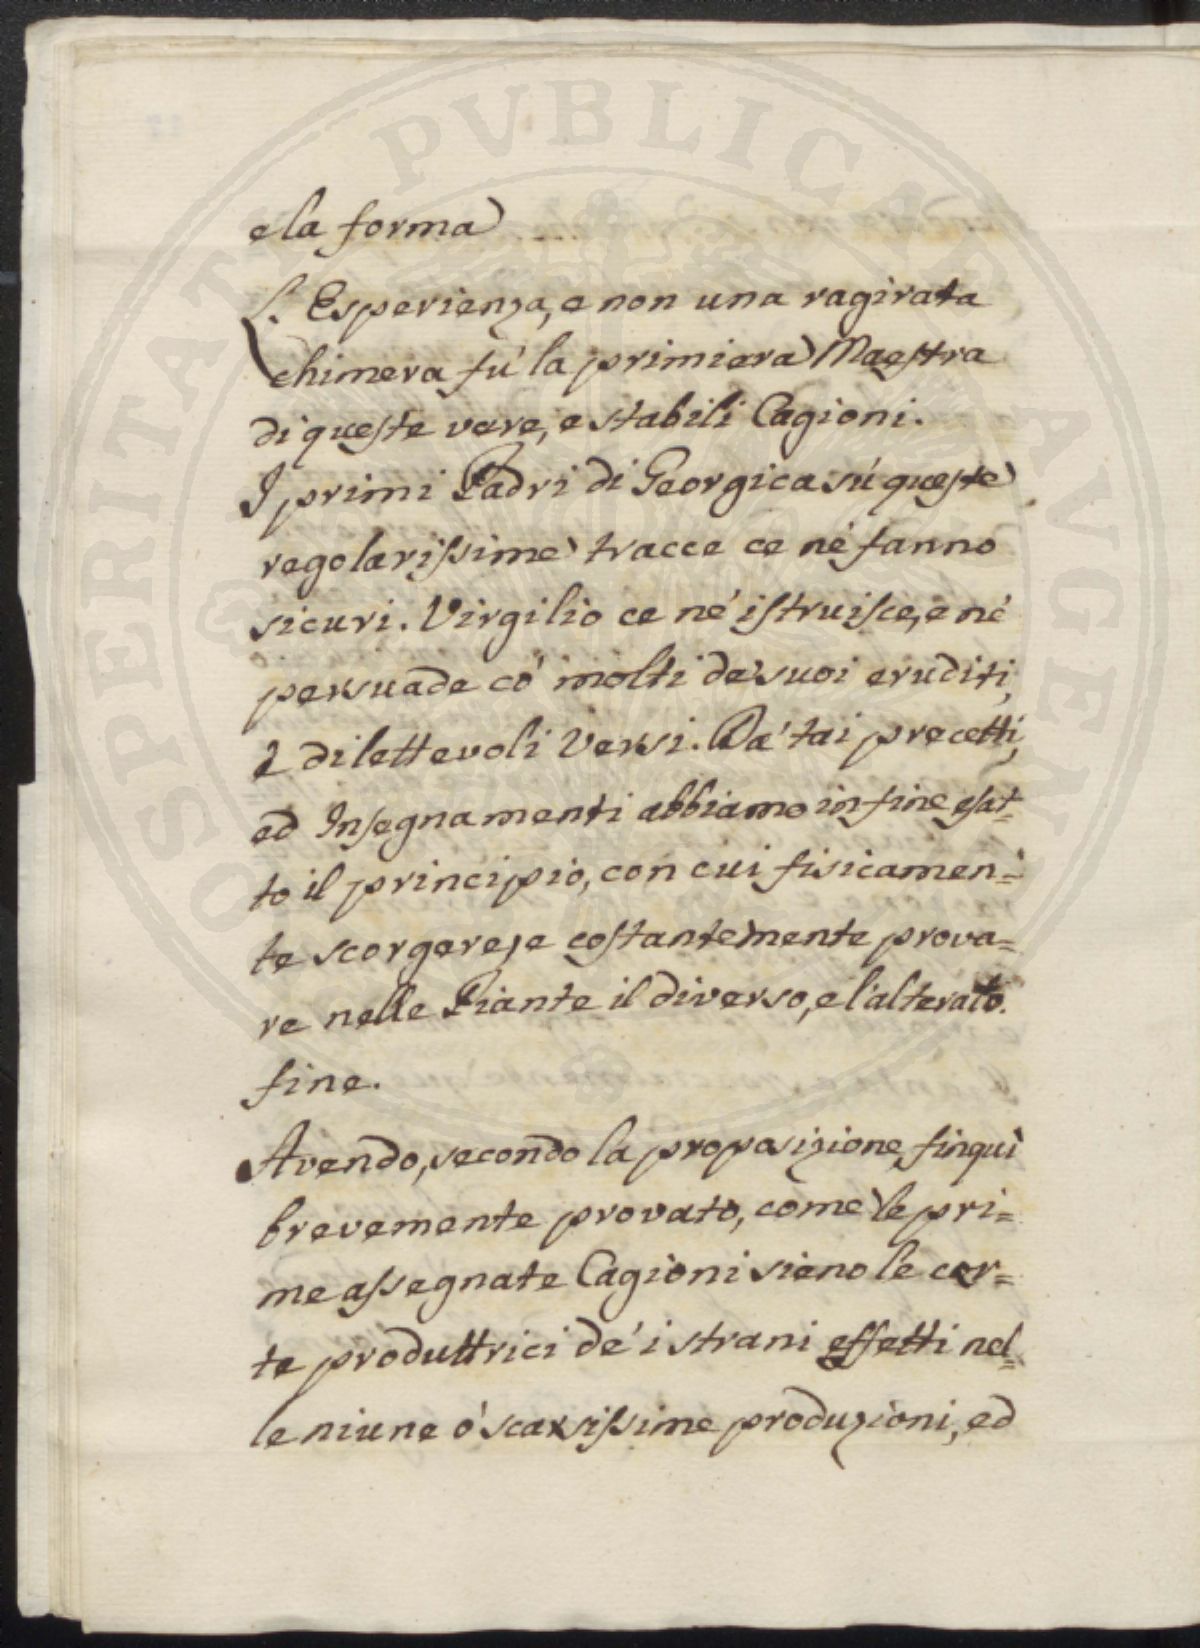 e la forma
L'Esperienza, e non una ragirata
chimera fu' la primiera Maestra
di queste vere, e stabili Cagioni.
I primi Padri di Georgica sù queste
regolarissime tracce ce né fanno
sicuri. Virgilio ce né istruisce, e né
persuade có molti de' suoi eruditi,
e dilettevoli Versi. Da' tai precetti,
ed Insegnamenti abbiamo in fine esat-
to il principio, con cui fisicamen=
te scorgere, e costantemente prova=
re nelle Piante il diverso, e l'alterato
fine.
Avendo, secondo la proposizione, finquì
brevemente provato, come le pri=
me assegnate Cagioni sieno le cer=
te produttrici de' i strani effetti nel=
le niune o' scarsissime produzioni, ed
PVBLICAE AVGENDAE
PROSPERITATI